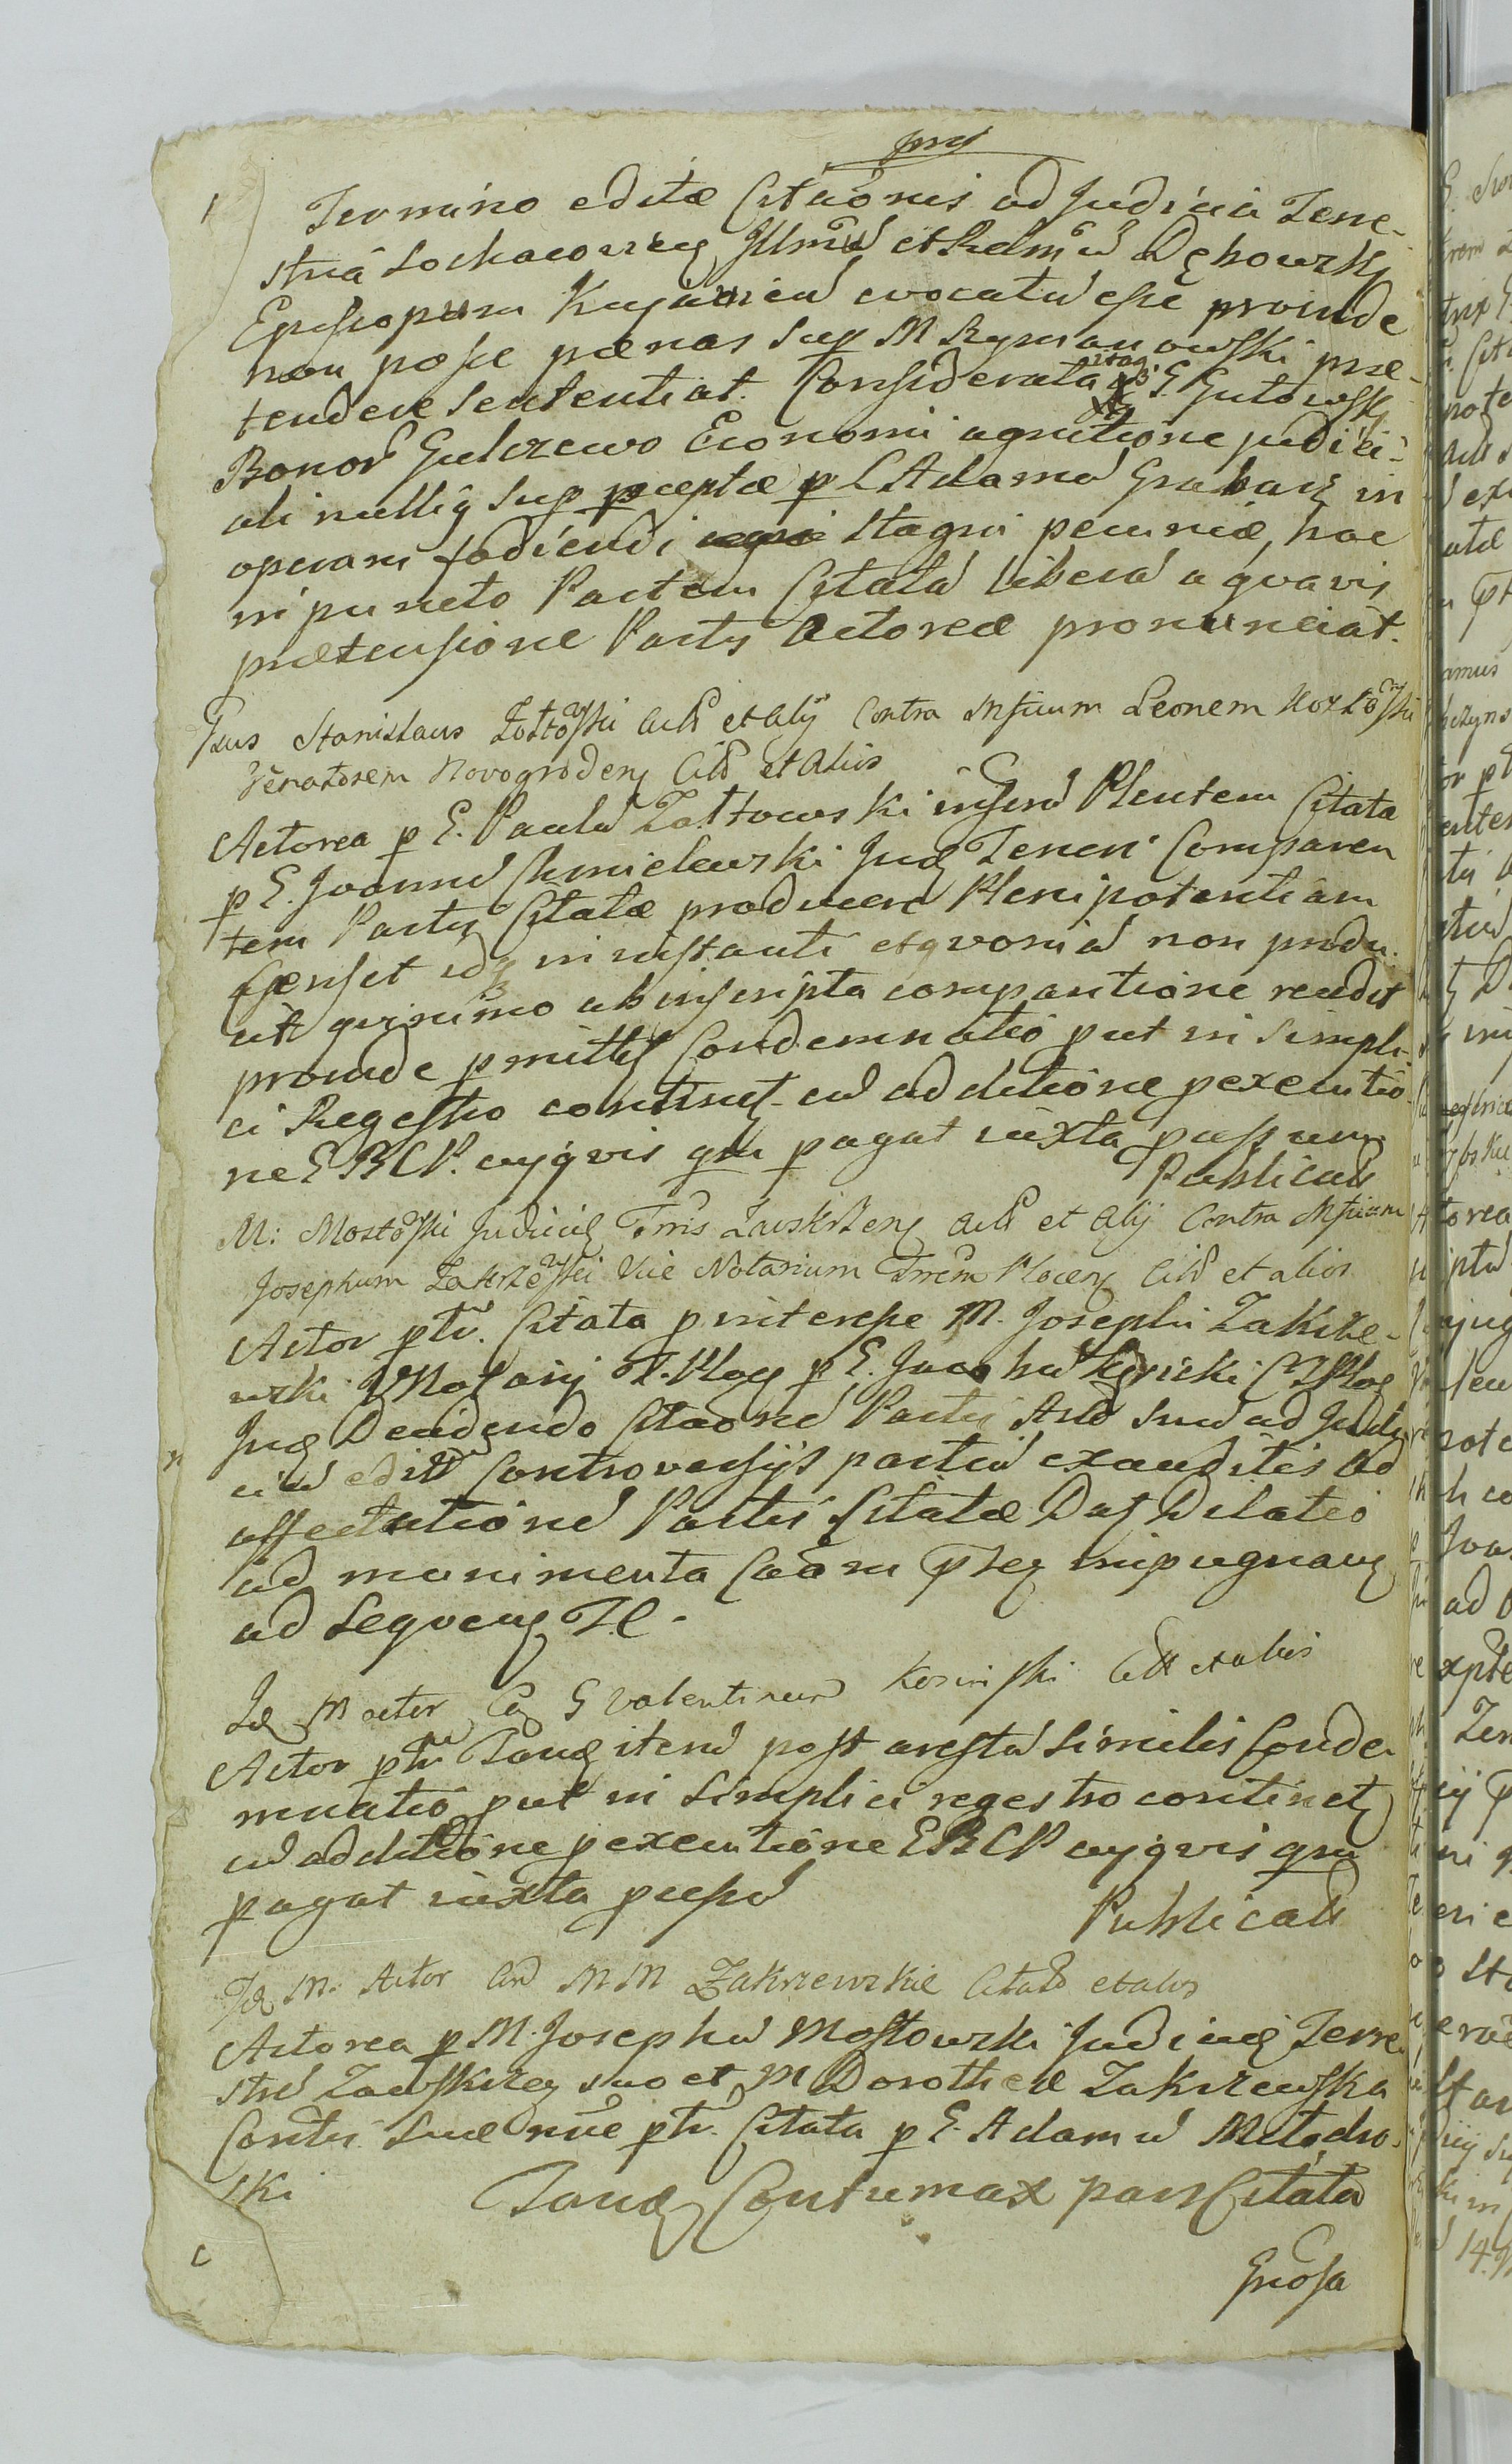 Termino editæ Citaõnis ad Judicia Terre-
stria Sochaczovieñ Illmũ et Rdmũ Dębowski
Episcopum Kujavieñ evocatũ eſse proinde
non poſse pænas sup M Rymanowski præ-
tendere sententiat. Considerata itaq G. Gutowski
Bonorũ Gulczewo Economi agnitione judici-
ali nulliq sup pceptæ p L Adamũ Grabarz in
operam fodiendi stagni pecuniæ, hoc
in puncto Partem Citatã liberã a qvavis
prætensione Partis Actoreæ pronunciat.
Gsus Stanislaus Żołtoſki Act et alij Contra Mficum Leonem Kozłoſki
Venatorem Novogrodeñ Citt et alios
Actorea p G. Paulũ Żołtowski inserũ Plentem Citata
p G. Joannẽ Chmielewski Jud Teneri Comparen
tem Partis Citatæ producere Plenipotentiam
Censet idq in instanti et qvoniã non produ-
cit qvinimo ab inscripta comparitione recedit
proinde pmittit Condemnatio put in simpli-
ci Regestro continet cũ additione pexecutio-
ne EBCP. cujqvis qrũ pagat iuxta pcessum
Publicatt
M: Mostoſki Judicis Trris Zawskrzeñ Act et alij Contra Mficum
Josephum Zakrzeſki Vice Notarium Trrem Ploceñ Citt et alios
Actor ptr. Citata p interesse M. Josephi Zakrze-
wski VNotarij T. Ploc p G. Jacobũ Kęsicki CTPloc
Jud Decidendo Citaõnẽ Partis Act suũ ad Judi
ciũ editã Controversijs partiũ exauditis ad
affectationẽ Partis Citatæ Dat Dilatio
ad munimenta Caõm pteg impugnañ
ad seqveñ T.C.
Id M actor Cõ G Valentinum Kosinſki Citt et alios
Actor ptr Tanq itenũ post arestũ similis Conde-
mnatio put in simplici regestro continet
cũ additione pexecutione EBCP cujqvis qrũ
pagat iuxta pcessũ
Publicatt
Id M: Actor Cõ MM Zakrzewskie Citatt et alios
Actorea p M. Josephũ Mostowski Judicẽ Terre-
strẽ Zawskrzeñ suo et M Dorotheæ Zakrzewska
Contis suæ nne ptr. Citata p G. Adamũ Młodzo-
ski
Tanq Contumax pars Citata
Gnosa